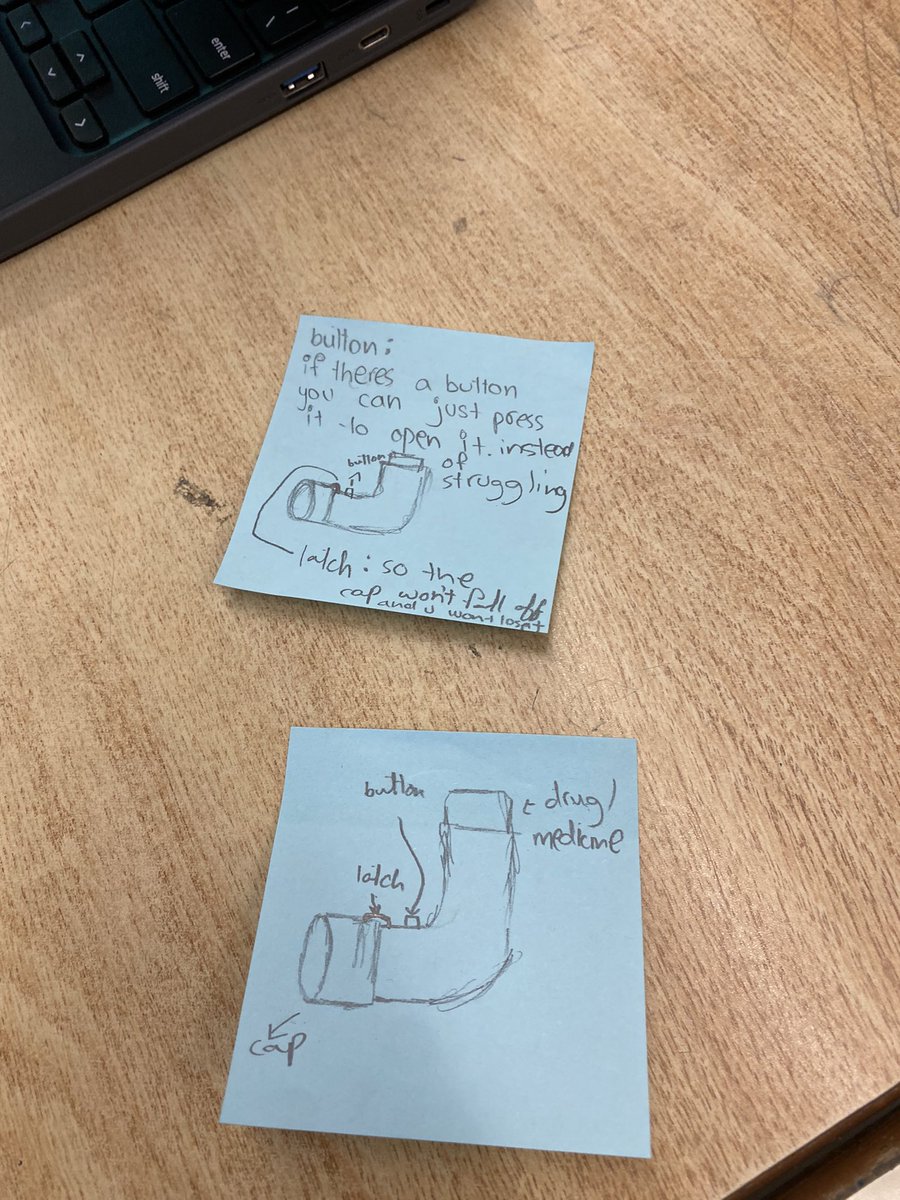 enter
shift
button:
if theres a button
you can just press
it to open it. instead
of
struggling
button
latch: so the
cap won't fall off
and u wont loset
button
drug/
medicine
latch
cap